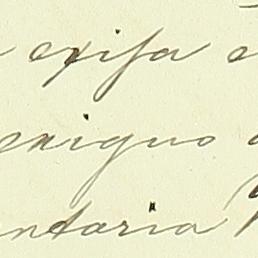 exija e
exiguo
ntaria